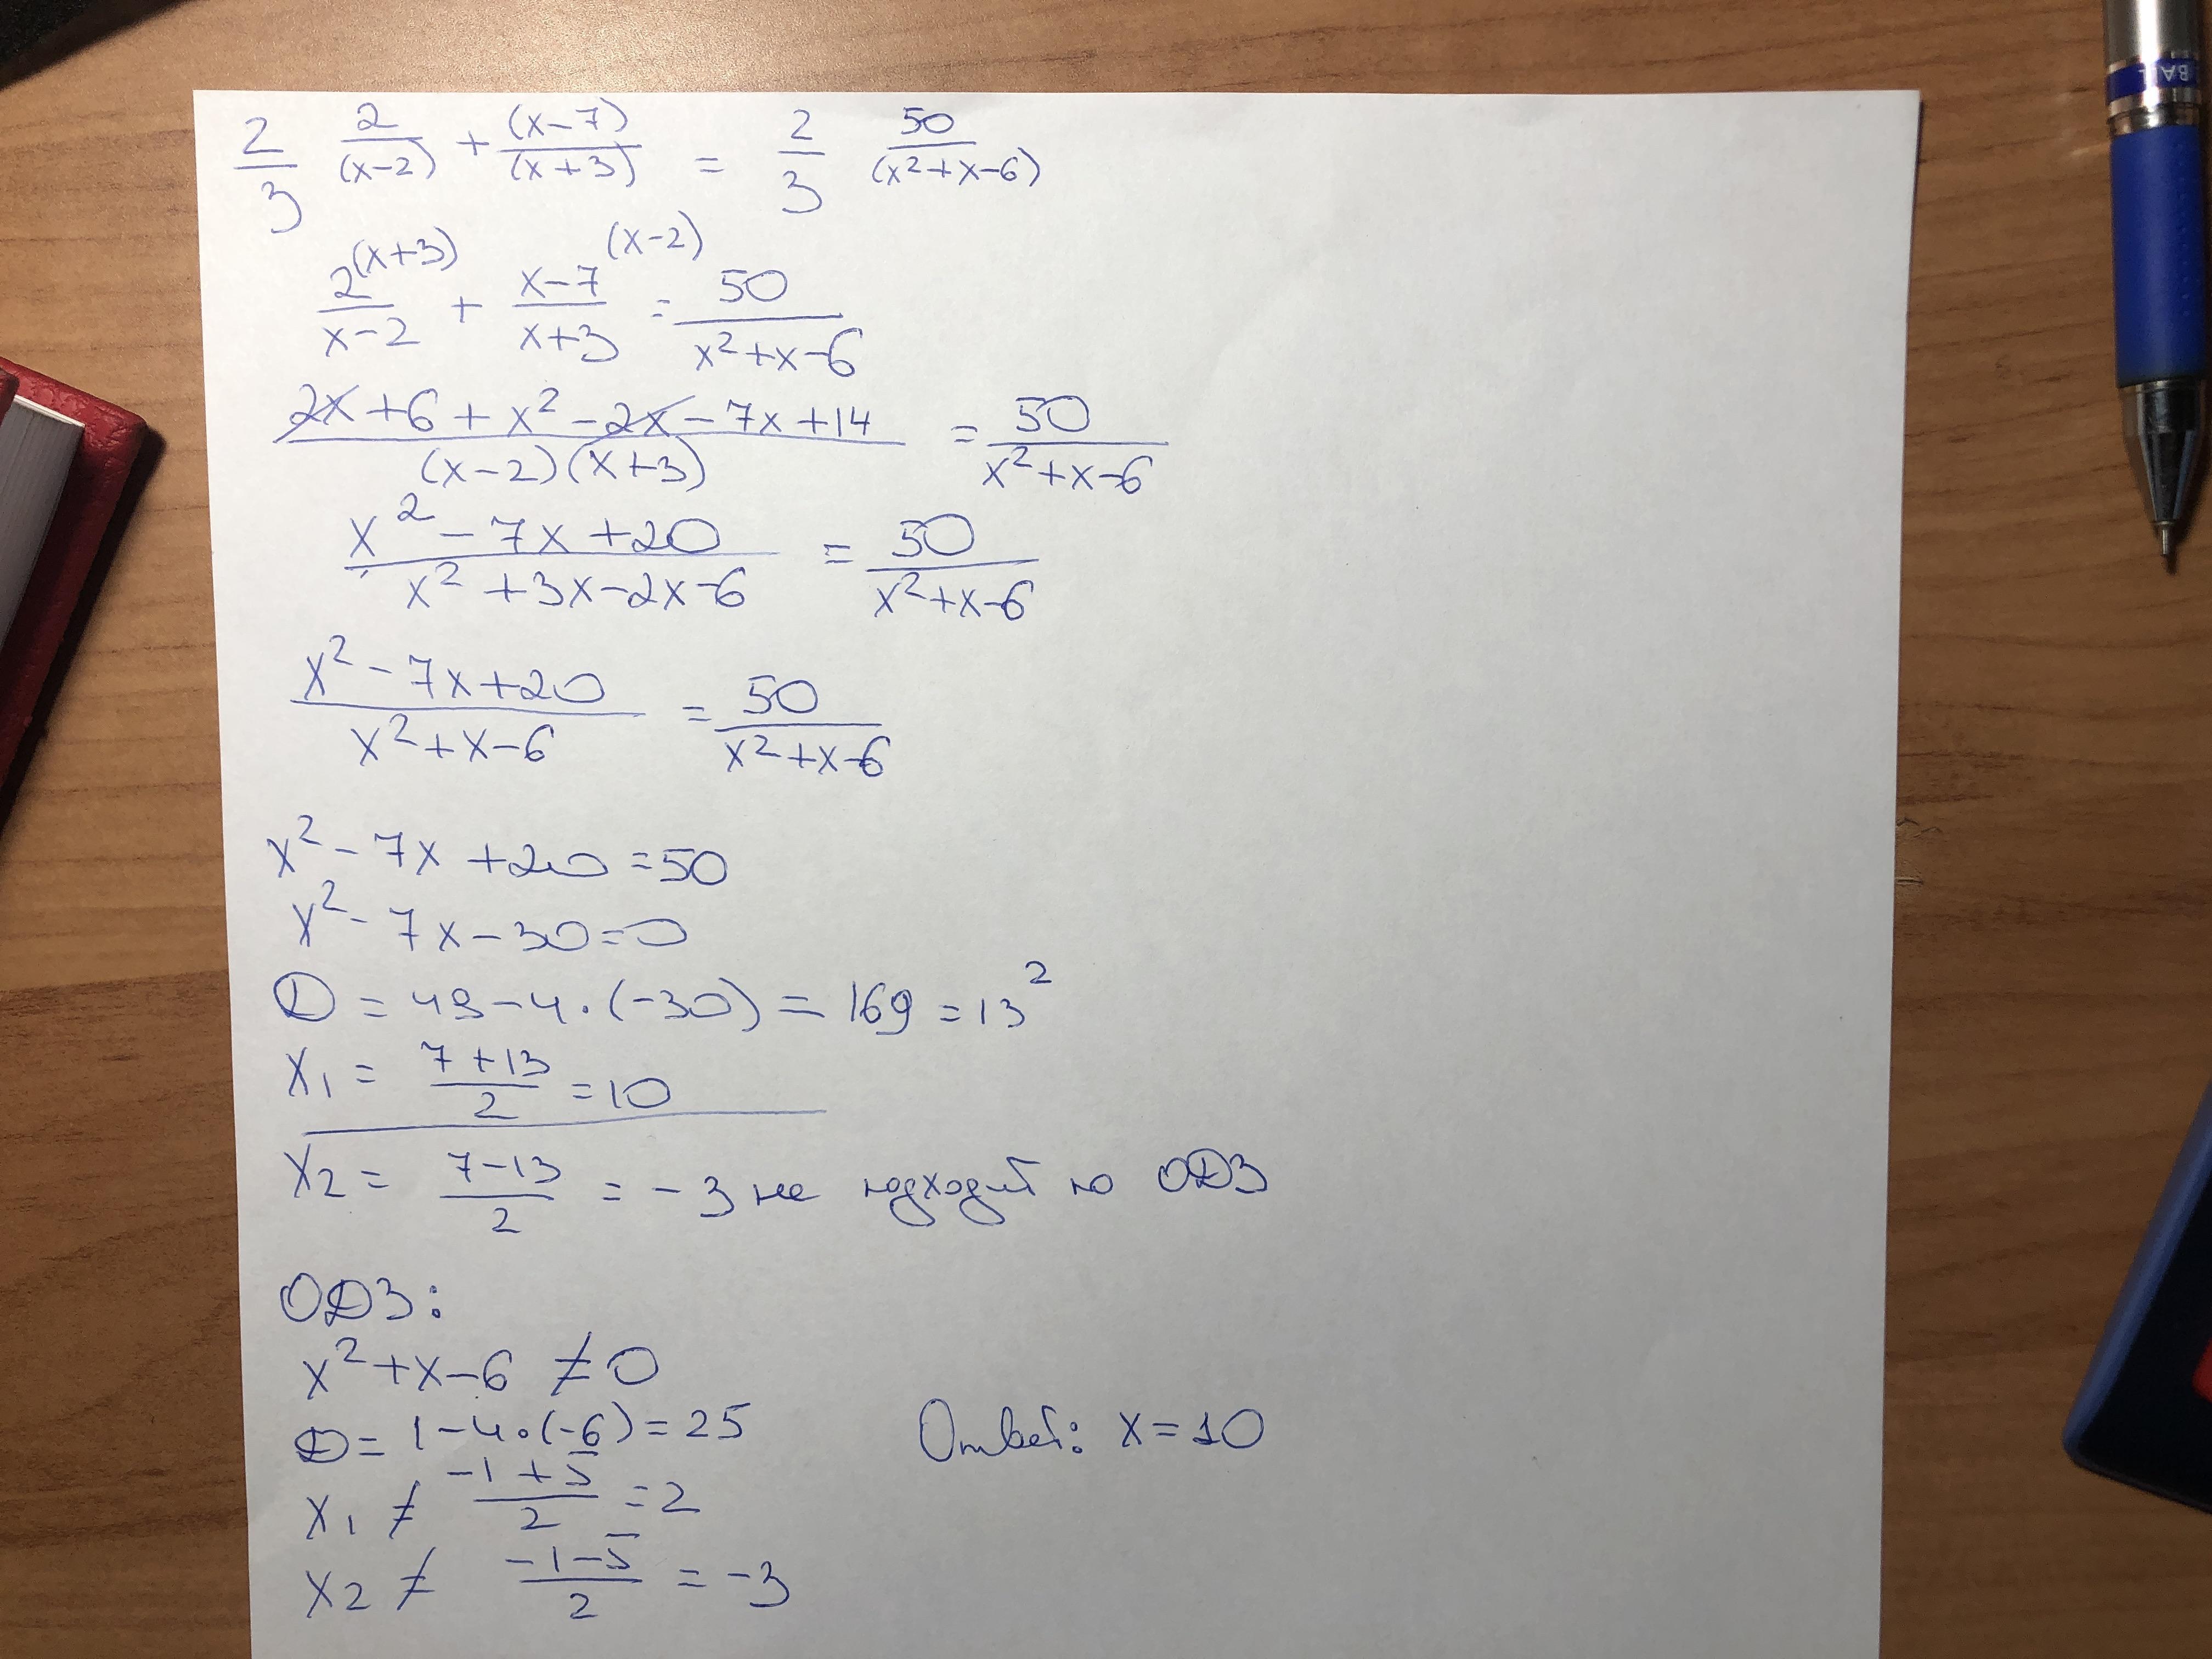 2/3 2/(x-2) + (x-7)/(x+3) = 2/3 50/(x²+x-6)
2(x+3)/x-2 + x-7(x-2)/x+3 = 50/x²+x-6
2x+6+x²-2x-7x+14/(x-2)(x+3) = 50/x²+x-6
x²-7x+20/x²+3x-2x-6 = 50/x²+x-6
x²-7x+20/x²+x-6 = 50/x²+x-6
x²-7x+20=50
x²-7x-30=0
D = 49-4·(-30) = 169 = 13²
x₁ = 7+13/2 = 10
x₂ = 7-13/2 = -3 не подходит по ОДЗ
ОДЗ:
x²+x-6 ≠ 0
D = 1-4·(-6) = 25
x₁ ≠ -1+5/2 = 2
x₂ ≠ -1-5/2 = -3
Ответ: x = 10
BALL